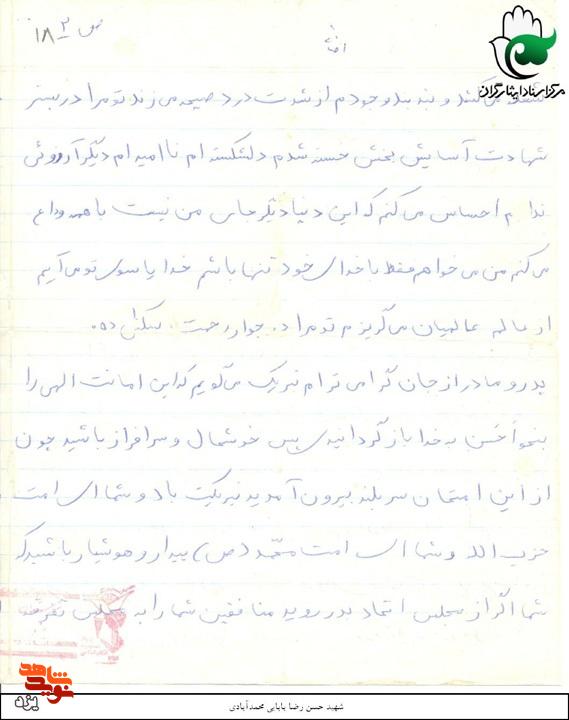 ص ۳
۱۸
مرکز اسناد ایثارگران
می‌کند و بند بند وجودم از شدت درد صیحه می‌زند تو مرا در بستر
شهادت آسایش بخش خسته شدم دلشکسته ام نا امید ام دیگر آرزوئی
ندارم احساس می‌کنم که این دنیا دیگر جای من نیست با همه وداع
می‌کنم من می‌خواهم فقط با خدای خود تنها باشم خدایا سوی تو می‌آیم
از عالم عالمیان می‌گریزم تو مرا در جوار رحمت ده.
پدر و مادر از جان گرامی ترام تبریک می‌گویم که این امانت الهی را
بنحو اَحسَن به خدا باز گردانیدی پس خوشحال و سرافراز باشید چون
از این امتحان سربلند بیرون آمدید تبریکت باد و شما ای امت
حزب الله و شما ای امت محمد (ص) بیدار و هوشیار باشید که
شما اگر از مجلس اتحاد بدر روید منافقین شما را به مجلس تفرقه
نوید شاهد
یزد
شهید حسن رضا بابایی محمدآبادی